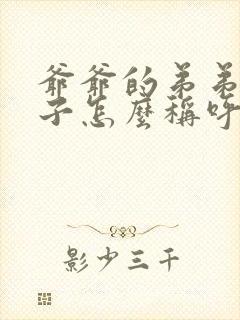 爺爺的弟弟
子怎麼稱呼
影少三千